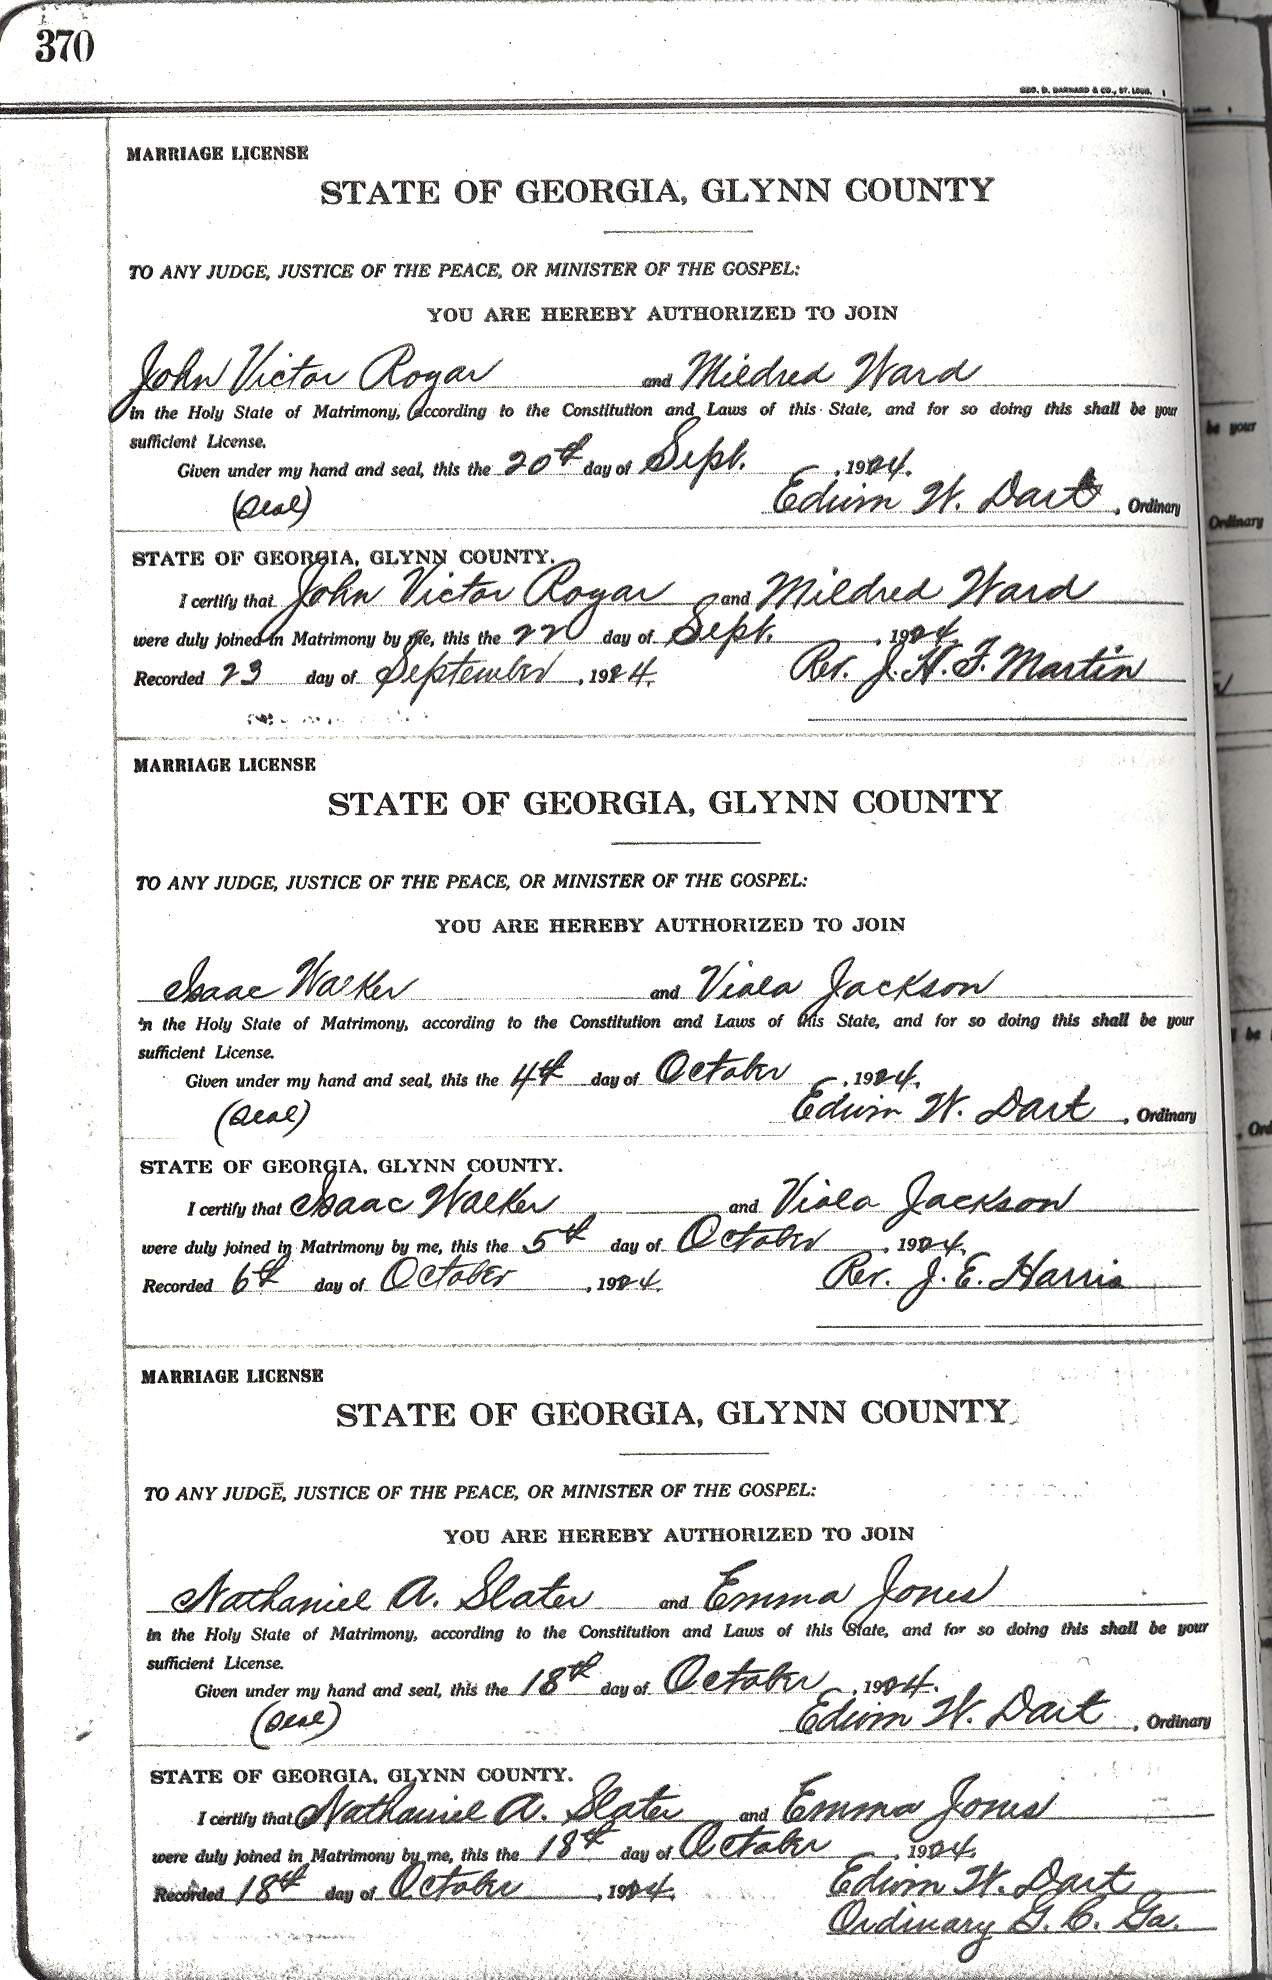 370
GEO. D. BARNARD & CO., ST. LOUIS.
MARRIAGE LICENSE
STATE OF GEORGIA, GLYNN COUNTY
TO ANY JUDGE, JUSTICE OF THE PEACE, OR MINISTER OF THE GOSPEL:
YOU ARE HEREBY AUTHORIZED TO JOIN
John Victor Royar and Mildred Ward
in the Holy State of Matrimony, according to the Constitution and Laws of this State, and for so doing this shall be your
sufficient License.
Given under my hand and seal, this the 20th day of Sept. , 1924.
(Seal) Edwin W. Dart , Ordinary
STATE OF GEORGIA, GLYNN COUNTY.
I certify that John Victor Royar and Mildred Ward
were duly joined in Matrimony by me, this the 22 day of Sept. , 1924.
Recorded 23 day of September , 1924. Rev. J. H. F. Martin
MARRIAGE LICENSE
STATE OF GEORGIA, GLYNN COUNTY
TO ANY JUDGE, JUSTICE OF THE PEACE, OR MINISTER OF THE GOSPEL:
YOU ARE HEREBY AUTHORIZED TO JOIN
Isaac Walker and Viola Jackson
in the Holy State of Matrimony, according to the Constitution and Laws of this State, and for so doing this shall be your
sufficient License.
Given under my hand and seal, this the 4th day of October , 1924.
(Seal) Edwin W. Dart , Ordinary
STATE OF GEORGIA, GLYNN COUNTY.
I certify that Isaac Walker and Viola Jackson
were duly joined in Matrimony by me, this the 5th day of October , 1924.
Recorded 6th day of October , 1924. Rev. J. E. Harris
MARRIAGE LICENSE
STATE OF GEORGIA, GLYNN COUNTY
TO ANY JUDGE, JUSTICE OF THE PEACE, OR MINISTER OF THE GOSPEL:
YOU ARE HEREBY AUTHORIZED TO JOIN
Nathaniel A. Slater and Emma Jones
in the Holy State of Matrimony, according to the Constitution and Laws of this State, and for so doing this shall be your
sufficient License.
Given under my hand and seal, this the 18th day of October , 1924.
(Seal) Edwin W. Dart , Ordinary
STATE OF GEORGIA, GLYNN COUNTY.
I certify that Nathaniel A. Slater and Emma Jones
were duly joined in Matrimony by me, this the 18th day of October , 1924.
Recorded 18th day of October , 1924. Edwin W. Dart
Ordinary G. C. Ga.
be your
Ordinary
l be
, Ord